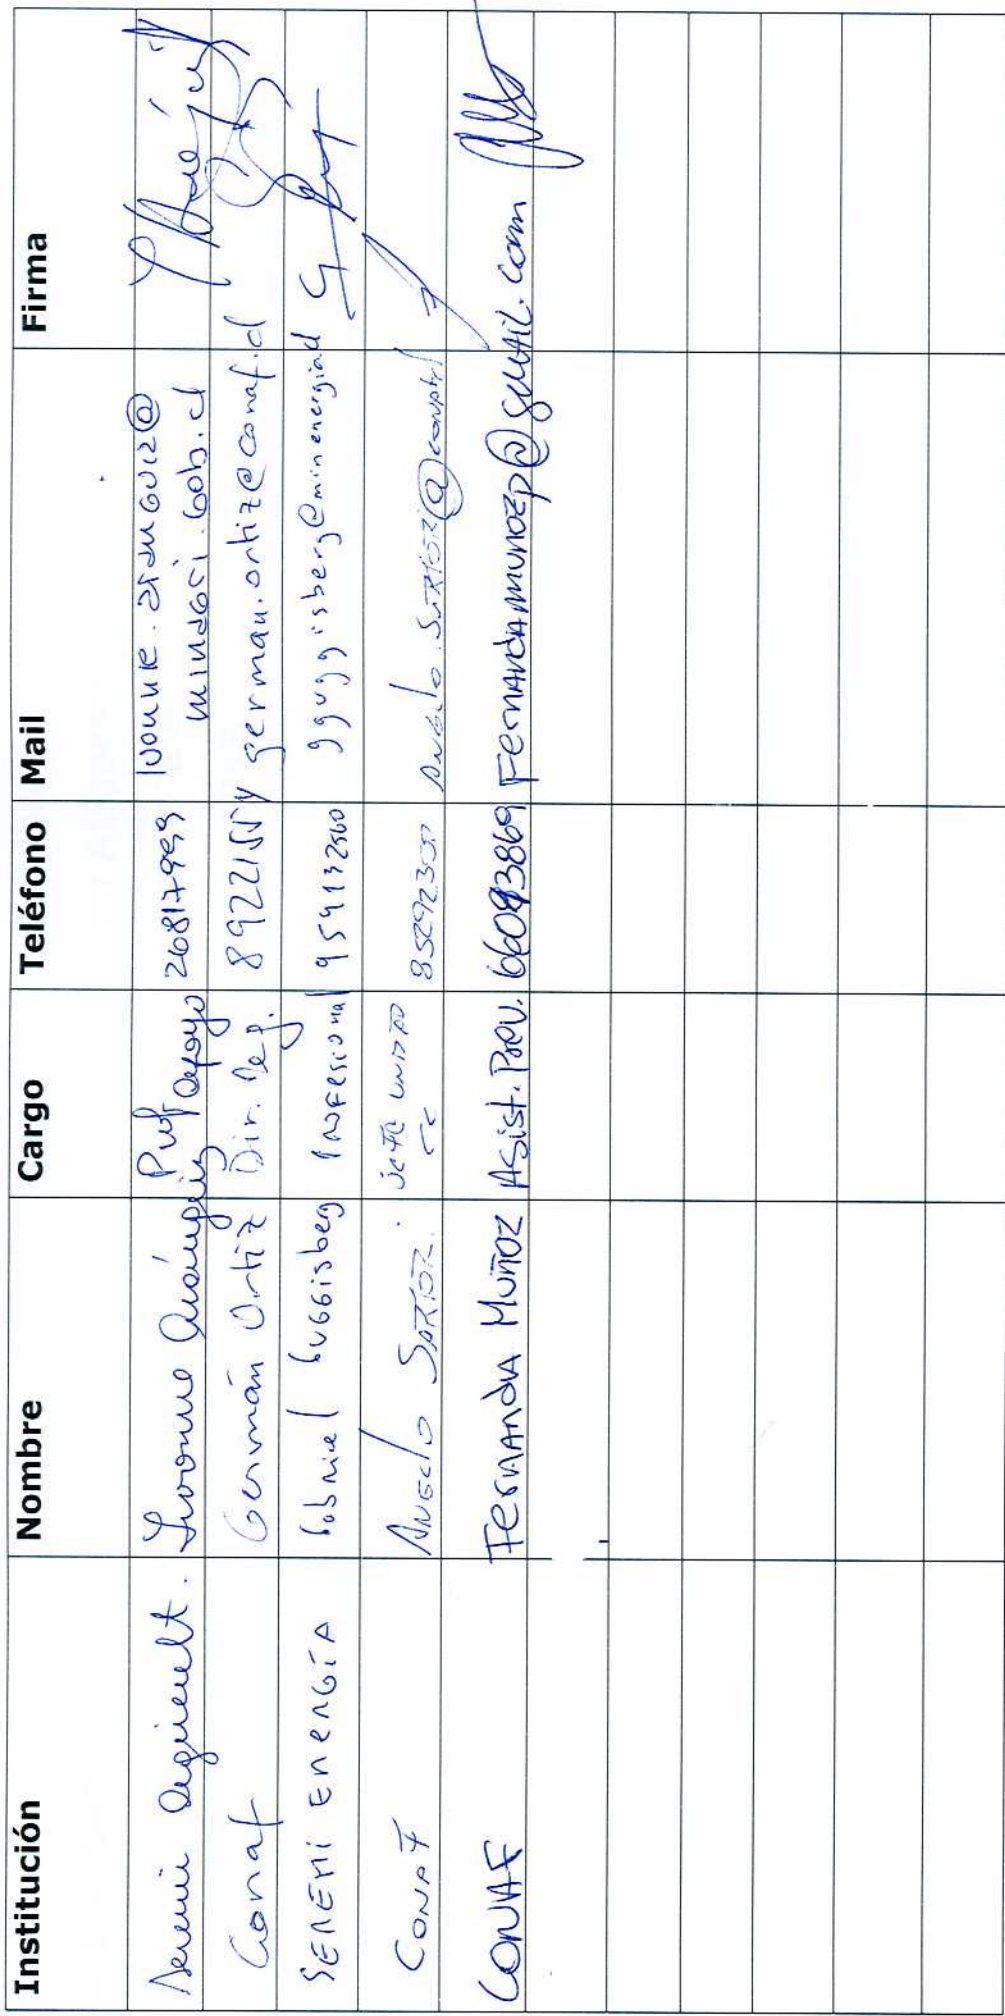 Institución Nombre Cargo Teléfono Mail Firma
Seremi Agricult. Ivonne Aránguiz Prof apoyo 26817999 ivonne.aranguiz@
minagri.gob.cl
Conaf Germán Ortiz Dir. Reg. german.ortiz@conaf.cl
SEREMI ENERGÍA Gabriel Guggisberg Profesional gguggisberg@minenergia.cl
CONAF Angelo Sartori Jefe Unidad
CC
CONAF Fernanda Muñoz Asist. Prov. 66093869 Fernandamunozp@gmail.com